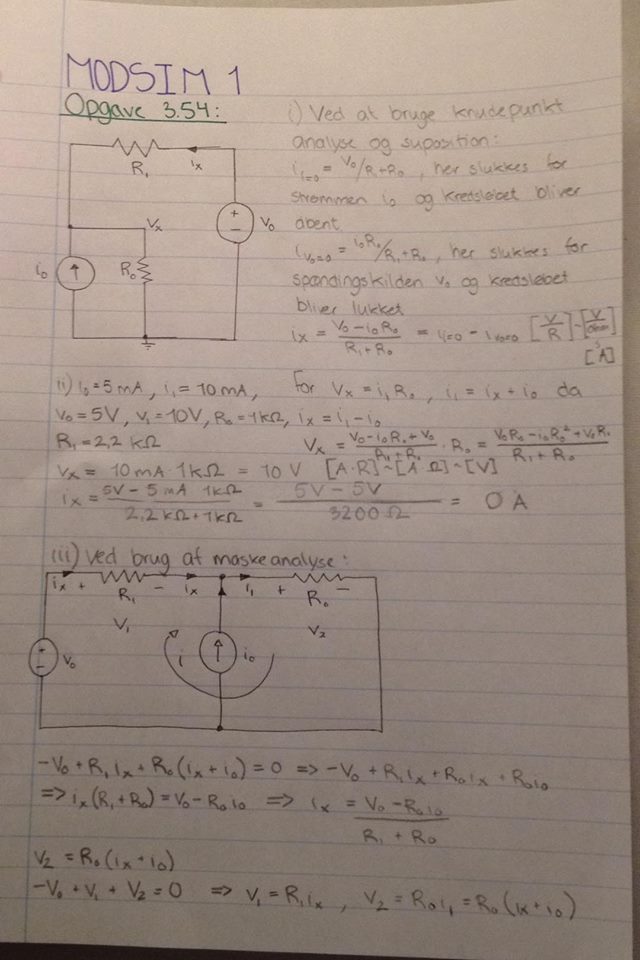 MODSIM 1
Opgave 3.54:
R₁
iₓ
Vₓ
V₀
i₀
R₀
i) Ved at bruge knudepunkt
analyse og suposition:
i_{i=0} = V₀/R₁+R₀, her slukkes for
strømmen i₀ og kredsløbet bliver
åbent
i_{V₀=0} = i₀R₀/R₁+R₀, her slukkes for
spændingskilden V₀ og kredsløbet
bliver lukket
iₓ = (V₀-i₀R₀)/(R₁+R₀) = i_{i=0} - i_{V₀=0} [V/R] ~ [V/Ohm]
[A]
ii) i₀=5mA, i₁=10mA,
V₀=5V, V₁=10V, R₀=1kΩ,
R₁=2,2 kΩ
for Vₓ = i₁R₀, i₁ = iₓ+i₀ da
iₓ=i₁-i₀
Vₓ = (V₀-i₀R₀+V₀)/(R₁+R₀) · R₀ = (V₀R₀-i₀R₀²+V₀R₁)/(R₁+R₀)
Vₓ = 10mA·1kΩ = 10V [A·R]~[A Ω]~[V]
iₓ = (5V-5mA 1kΩ)/(2,2kΩ+1kΩ) = (5V-5V)/(3200Ω) = 0A
iii) Ved brug af maskeanalyse:
iₓ + R₁ - iₓ i₁ + R₀ -
V₁ V₂
V₀ i i₀
-V₀+R₁iₓ+R₀(iₓ+i₀)=0 => -V₀+R₁iₓ+R₀iₓ+R₀i₀
=> iₓ(R₁+R₀)=V₀-R₀i₀ => iₓ = (V₀-R₀i₀)/(R₁+R₀)
V₂=R₀(iₓ+i₀)
-V₀+V₁+V₂=0 => V₁=R₁iₓ, V₂=R₀i₁=R₀(iₓ+i₀)